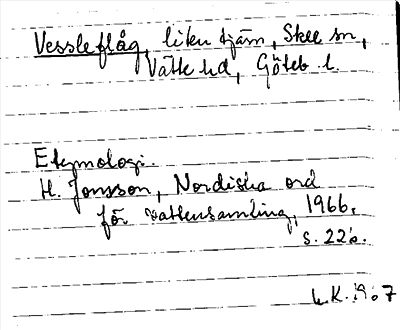 Vessleflåg, liten tjärn, Skee sn,
Vätte hd, Göteb l.
Etymologi.
H. Jonsson, Nordiska ord
för vattensamling, 1966,
s. 226.
K. 1967